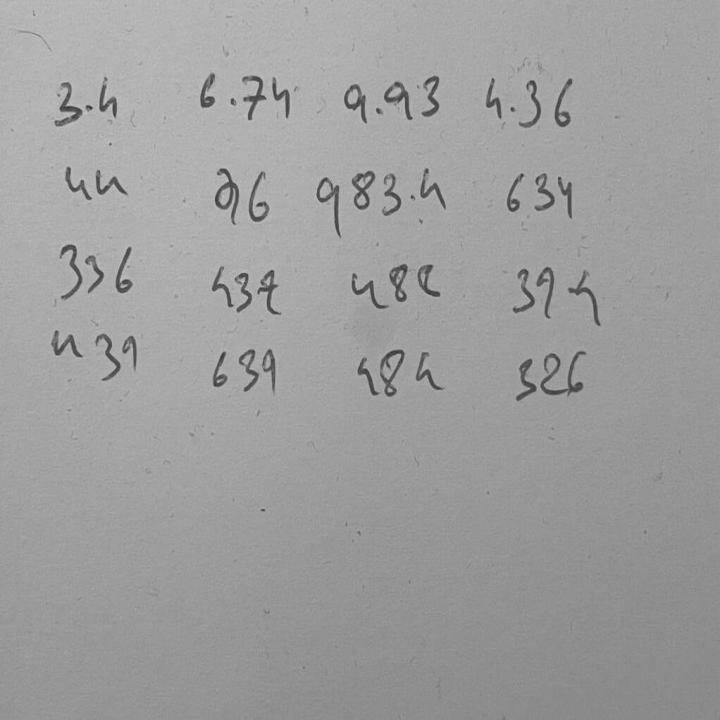 3.4 6.74 9.93 4.36
44 96 983.4 634
336 437 48 394
439 639 484 326